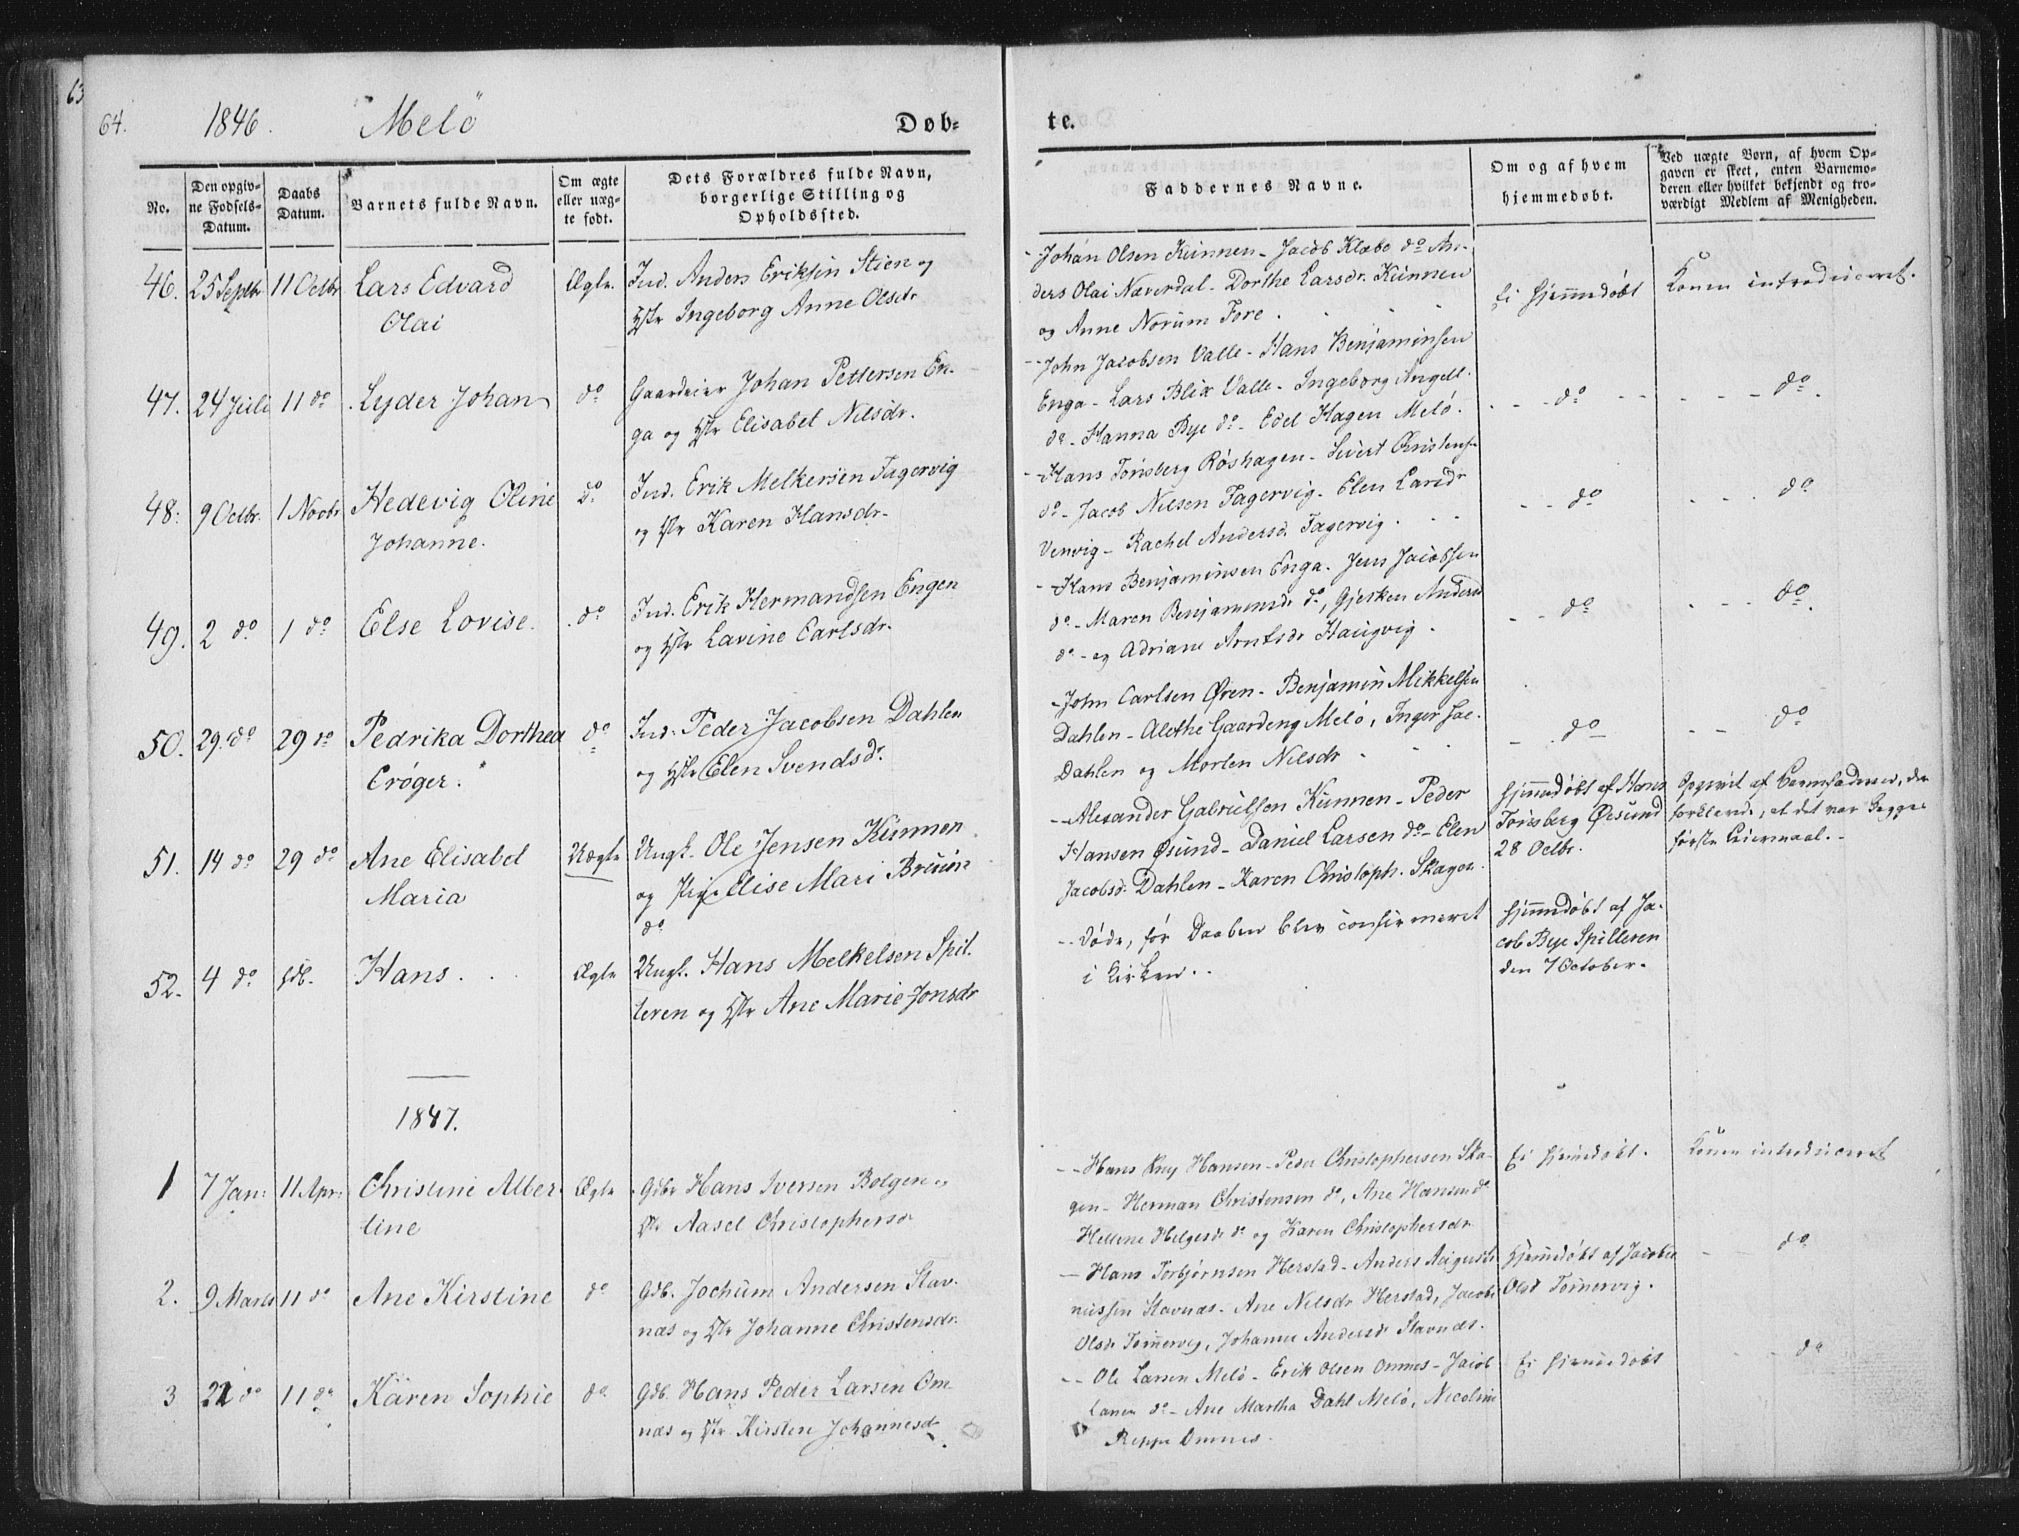 63
64. 1846. Melö Døb- te.
No.
Den opgiv-
ne Fødsels-
Datum.
Daabs
Datum.
Barnets fulde Navn.
Om ægte
eller uæg-
te født.
Dets Forældres fulde Navn,
borgerlige Stilling og
Opholdssted.
Faddernes Navne.
Om og af hvem
hjemmedøbt.
Ved uægte Børn, af hvem Op-
gaven er skeet, enten Barnemo-
deren eller hvilket bekjendt og tro-
værdigt Medlem af Menigheden.
46. 25 Septbr 11 Octbr Lars Edvard
Olai
Ægte.
Ind. Anders Eriksen Stien og
Hstr Ingeborg Anne Olsdr
Johan Olsen Kunnen - Jacob Klæbo do An-
ders Olai Næverdal - Dorthe Larsdr. Kunnen
og Anne Norum Fore.
Ei hjemmedøbt
Konen introduceret.
47. 24 Juli 11 do Lyder Johan do
Gaardeier Johan Pettersen En-
ga og Hstr Elisabet Nilsdr.
John Jacobsen Valle - Hans Benjaminsen
Enga - Lars Blix Valle - Ingeborg Angell
do - Hanna Bye do - Edel Hagen Melö.
do
do.
48. 9 Octbr. 1 Novbr Hedevig Oline
Johanne.
do
Ind. Erik Melkersen Fagervig
og Hstr Karen Hansdr.
Hans Tønsberg Røshagen - Sivert Christens.
do - Jacob Nilsen Fagervig - Elen Larsdr
Venvig - Rachel Andersd. Fagervig.
do
do
49. 2 do 1 do Else Lovise. do
Ind. Erik Hermandsen Engen
og Hstr Lavine Carlsdr.
Hans Benjaminsen Enga. Jens Jacobsen
do - Maren Benjaminsdr do, Gjerken Andersd
do - og Adriane Arntsdr Haugvig.
do
do.
50. 29. do 29 do Pedrika Dorthea
Crøger.
do
Ind. Peder Jacobsen Dahlen
og Hstr Elen Svendsdr.
John Carlsen Øren - Benjamin Mikkelsen
Dahlen - Alethe Gaardeng Melö, Inger Jac.
Dahlen og Morten Nilsdr
do
do
51. 14 do 29 do Ane Elisabet
Maria
Uægte
Ungk. Ole Jensen Kunnen
og Pige Elise Mari Bruun
do
Alexander Gabrielsen Kunnen - Peder
Hansen Øsund - Daniel Larsen do - Elen
Jacobsd. Dahlen - Karen Christoph. Skagen.
Hjemmedøbt af Hans
Tønsberg Øesund
28 Octbr.
Opgivet af Barnefaderen, der
forklarede, at det var begges
første Leiermaal.
52. 4 do hdb. Hans. Ægte
Ungk. Hans Melkelsen Spil-
leren og Hstr Ane Marie Jonsdr
Døde, før Daaben blev confirmeret
i Kirken.
hjemmedøbt af Ja-
cob Bye Spilleren
den 7 October.
1847.
1 7 Jan: 11 Apr: Christine Alber
tine
Ægte
Gdbr Hans Iversen Bolgen og
Hstr Aasel Christophersdr
Hans Kny Hansen - Peder Christophersen Ska-
gen - Herman Christensen do, Ane Hansen do
Hellene Helgesdr do og Karen Christophersdr
Ei hjemmedøbt.
Konen introduceret
2. 9 Marts 11 do Ane Kirstine do
Gdb. Jochum Andersen Stav-
næs og Hstr Johanne Christensdr.
Hans Torbjørnsen Herstad - Anders Augusti-
nussen Stavnæs - Ane Nilsdr Herstad, Jacobe
Olsdr Tønnervig, Johanne Andersdr Stavnæs.
Hjemmedøbt af Jacobe
Olsd Tønnervig.
do
3 22 do 11 do Karen Sophie do
Gdb. Hans Peder Larsen Om
næs og Hstr Kirsten Johannesdr.
Ole Larsen Melö - Erik Olsen Omnes - Jacob
Larsen do - Ane Martha Dahl Melö, Nicoline
Reppe Omnes.
Ei hjemmedøbt
do